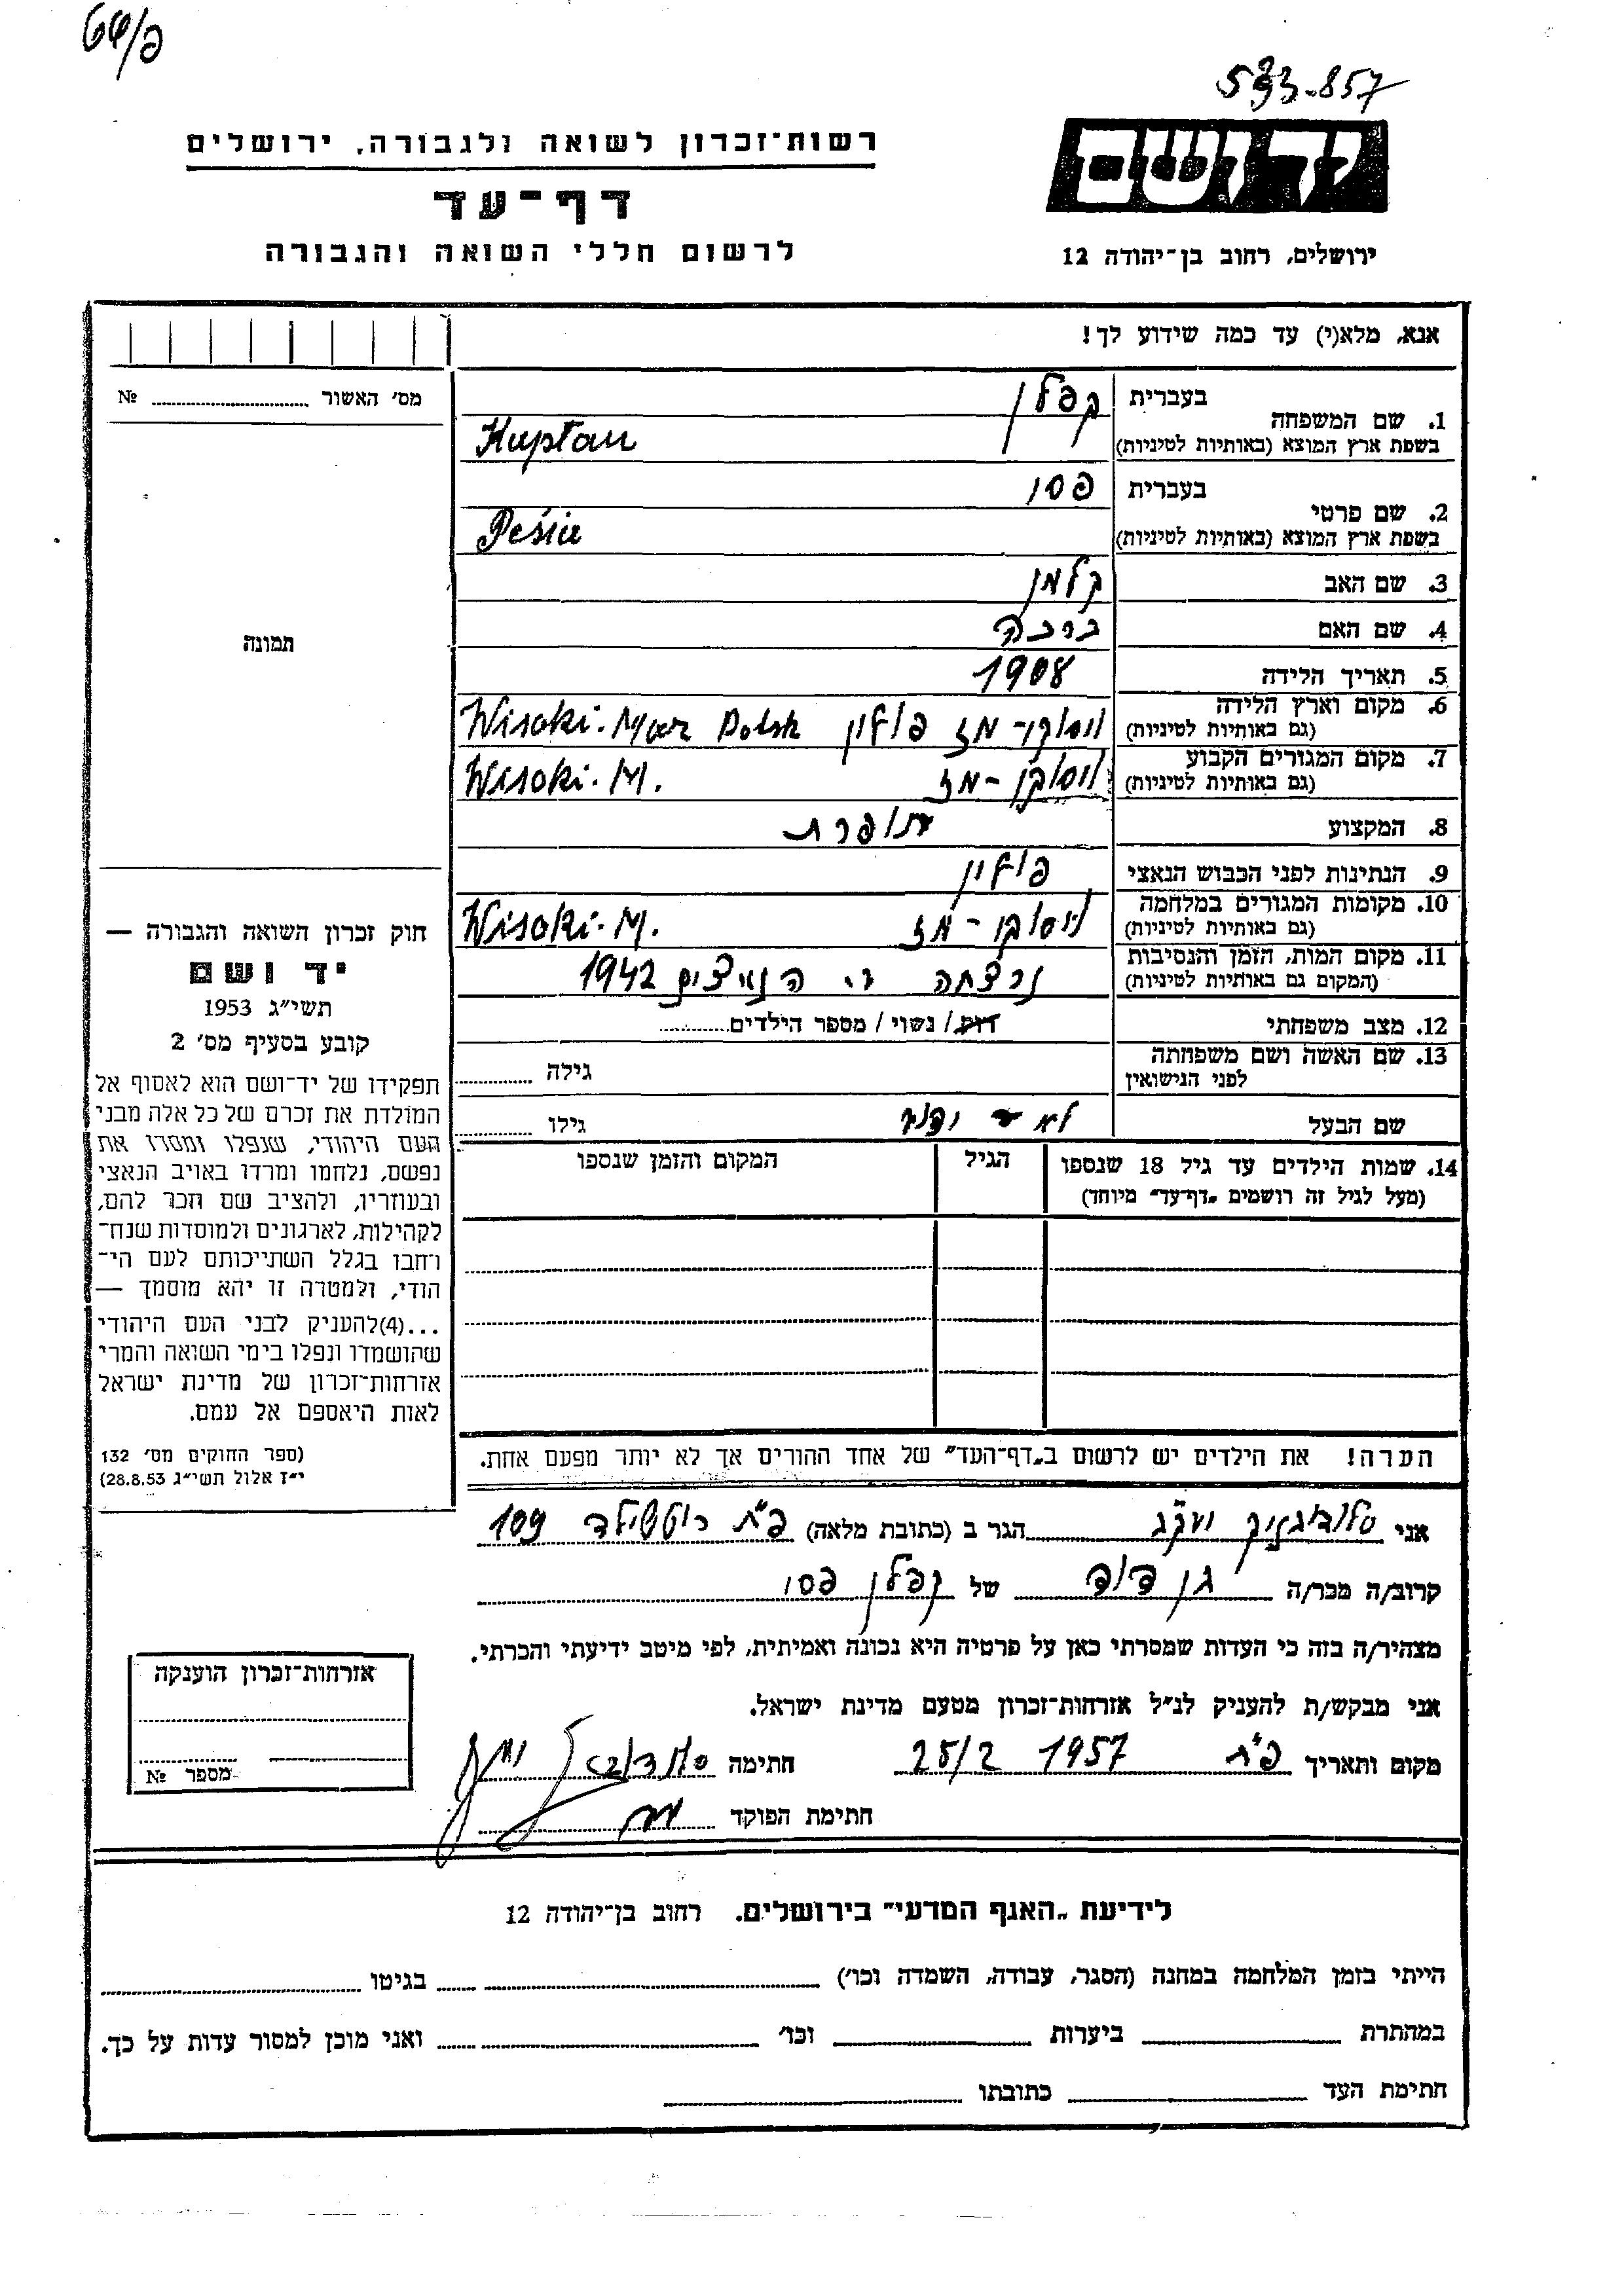 פ/64
533-857
יד ושם
רשות־זכרון לשואה ולגבורה, ירושלים
דף־עד
ירושלים, רחוב בן־יהודה 12
לרשום חללי השואה והגבורה
אנא, מלא(י) עד כמה שידוע לך!
מס׳ האשור № 
1. שם המשפחה בעברית קפלן
בשפת ארץ המוצא (באותיות לטיניות) Kaplan
2. שם פרטי בעברית פסי
בשפת ארץ המוצא (באותיות לטיניות) Peśia
3. שם האב קלמן
4. שם האם ברכה
תמונה
5. תאריך הלידה 1908
6. מקום וארץ הלידה ויסוקי-מז פולין Wisoki. Maz Polsk
(גם באותיות לטיניות)
7. מקום המגורים הקבוע ויסוקי-מז Wisoki. M.
(גם באותיות לטיניות)
8. המקצוע תופרת
9. הנתינות לפני הכבוש הנאצי פולין
10. מקומות המגורים במלחמה ויסוקי-מז Wisoki. M.
(גם באותיות לטיניות)
11. מקום המות, הזמן והנסיבות נרצחה ע״י הנאצים 1942
(המקום גם באותיות לטיניות)
12. מצב משפחתי רווק / נשוי / מספר הילדים
13. שם האשה ושם משפחתה לפני הנישואין גילה
שם הבעל לא ידוע גילו
14. שמות הילדים עד גיל 18 שנספו הגיל המקום והזמן שנספו
(מעל לגיל זה רושמים „דף־עד״ מיוחד)
חוק זכרון השואה והגבורה —
יד ושם
תשי״ג 1953
קובע בסעיף מס׳ 2
תפקידו של יד־ושם הוא לאסוף אל
המולדת את זכרם של כל אלה מבני
העם היהודי, שנפלו ומסרו את
נפשם, נלחמו ומרדו באויב הנאצי
ובעוזריו, ולהציב שם וזכר להם,
לקהילות, לארגונים ולמוסדות שנח־
רחבו בגלל השתייכותם לעם הי־
הודי, ולמטרה זו יהא מוסמך —
...(4)להעניק לבני העם היהודי
שהושמדו ונפלו בימי השואה והמרי
אזרחות־זכרון של מדינת ישראל
לאות היאספם אל עמם.
(ספר החוקים מס׳ 132
י״ז אלול תשי״ג 28.8.53)
הערה! את הילדים יש לרשום ב„דף־העד״ של אחד ההורים אך לא יותר מפעם אחת.
אני יעקב הגר ב (כתובת מלאה) פ״ת רוטשילד 109
קרוב/ה מכר/ה בן דוד של קפלן פסי
מצהיר/ה בזה כי העדות שמסרתי כאן על פרטיה היא נכונה ואמיתית, לפי מיטב ידיעתי והכרתי.
אני מבקש/ת להעניק לנ״ל אזרחות־זכרון מטעם מדינת ישראל.
מקום ותאריך פ״ת 25/2 1957 חתימה
חתימת הפוקד
אזרחות־זכרון הוענקה
מספר №
לידיעת „האגף המדעי״ בירושלים. רחוב בן־יהודה 12
הייתי בזמן המלחמה במחנה (הסגר, עבודה, השמדה וכו׳) בגיטו
במחתרת ביערות וכו׳ ואני מוכן למסור עדות על כך.
חתימת העד כתובתו